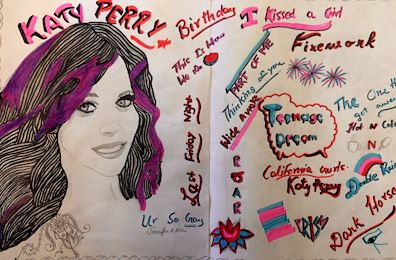 KATY PERRY
Birthday
This Is How
We Do
Last Friday Night
Ur So Gay
I Kissed a Girl
PART OF ME
Firework
Thinking of you
Wide AWAKE
Teenage
Dream
The One th
got away
Hot n Cold
ROAR
California Gurls
Katy Perry
Double Rain
RISE
Dark Horse